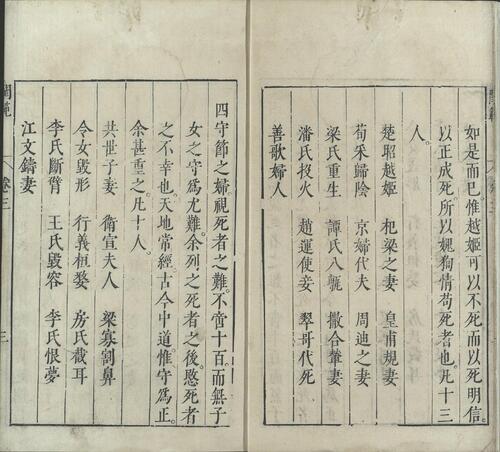 如是而已惟越姬可以不死而以死明信。
以正成死所以媿狥情苟死者也凡十三
人。
楚昭越姬 杞梁之妻 皇甫規妻
荀采歸陰 京婦代夫 周迪之妻
梁氏重生 譚氏八甎 撒合輦妻
潘氏投火 趙運使妾 翠哥代死
善歌婦人
四守節之婦視死者之難。不啻十百。而無子
女之守爲尤難。余列之死者之後。愍死者
之不幸也。天地常經。古今中道。惟守爲正。
余甚重之。凡十人。
共世子妻 衛宣夫人 梁寡割鼻
令女毀形 行義桓嫠 房氏截耳
李氏斷臂 王氏毀容 李氏恨夢
江文鑄妻
閨範 卷三 三